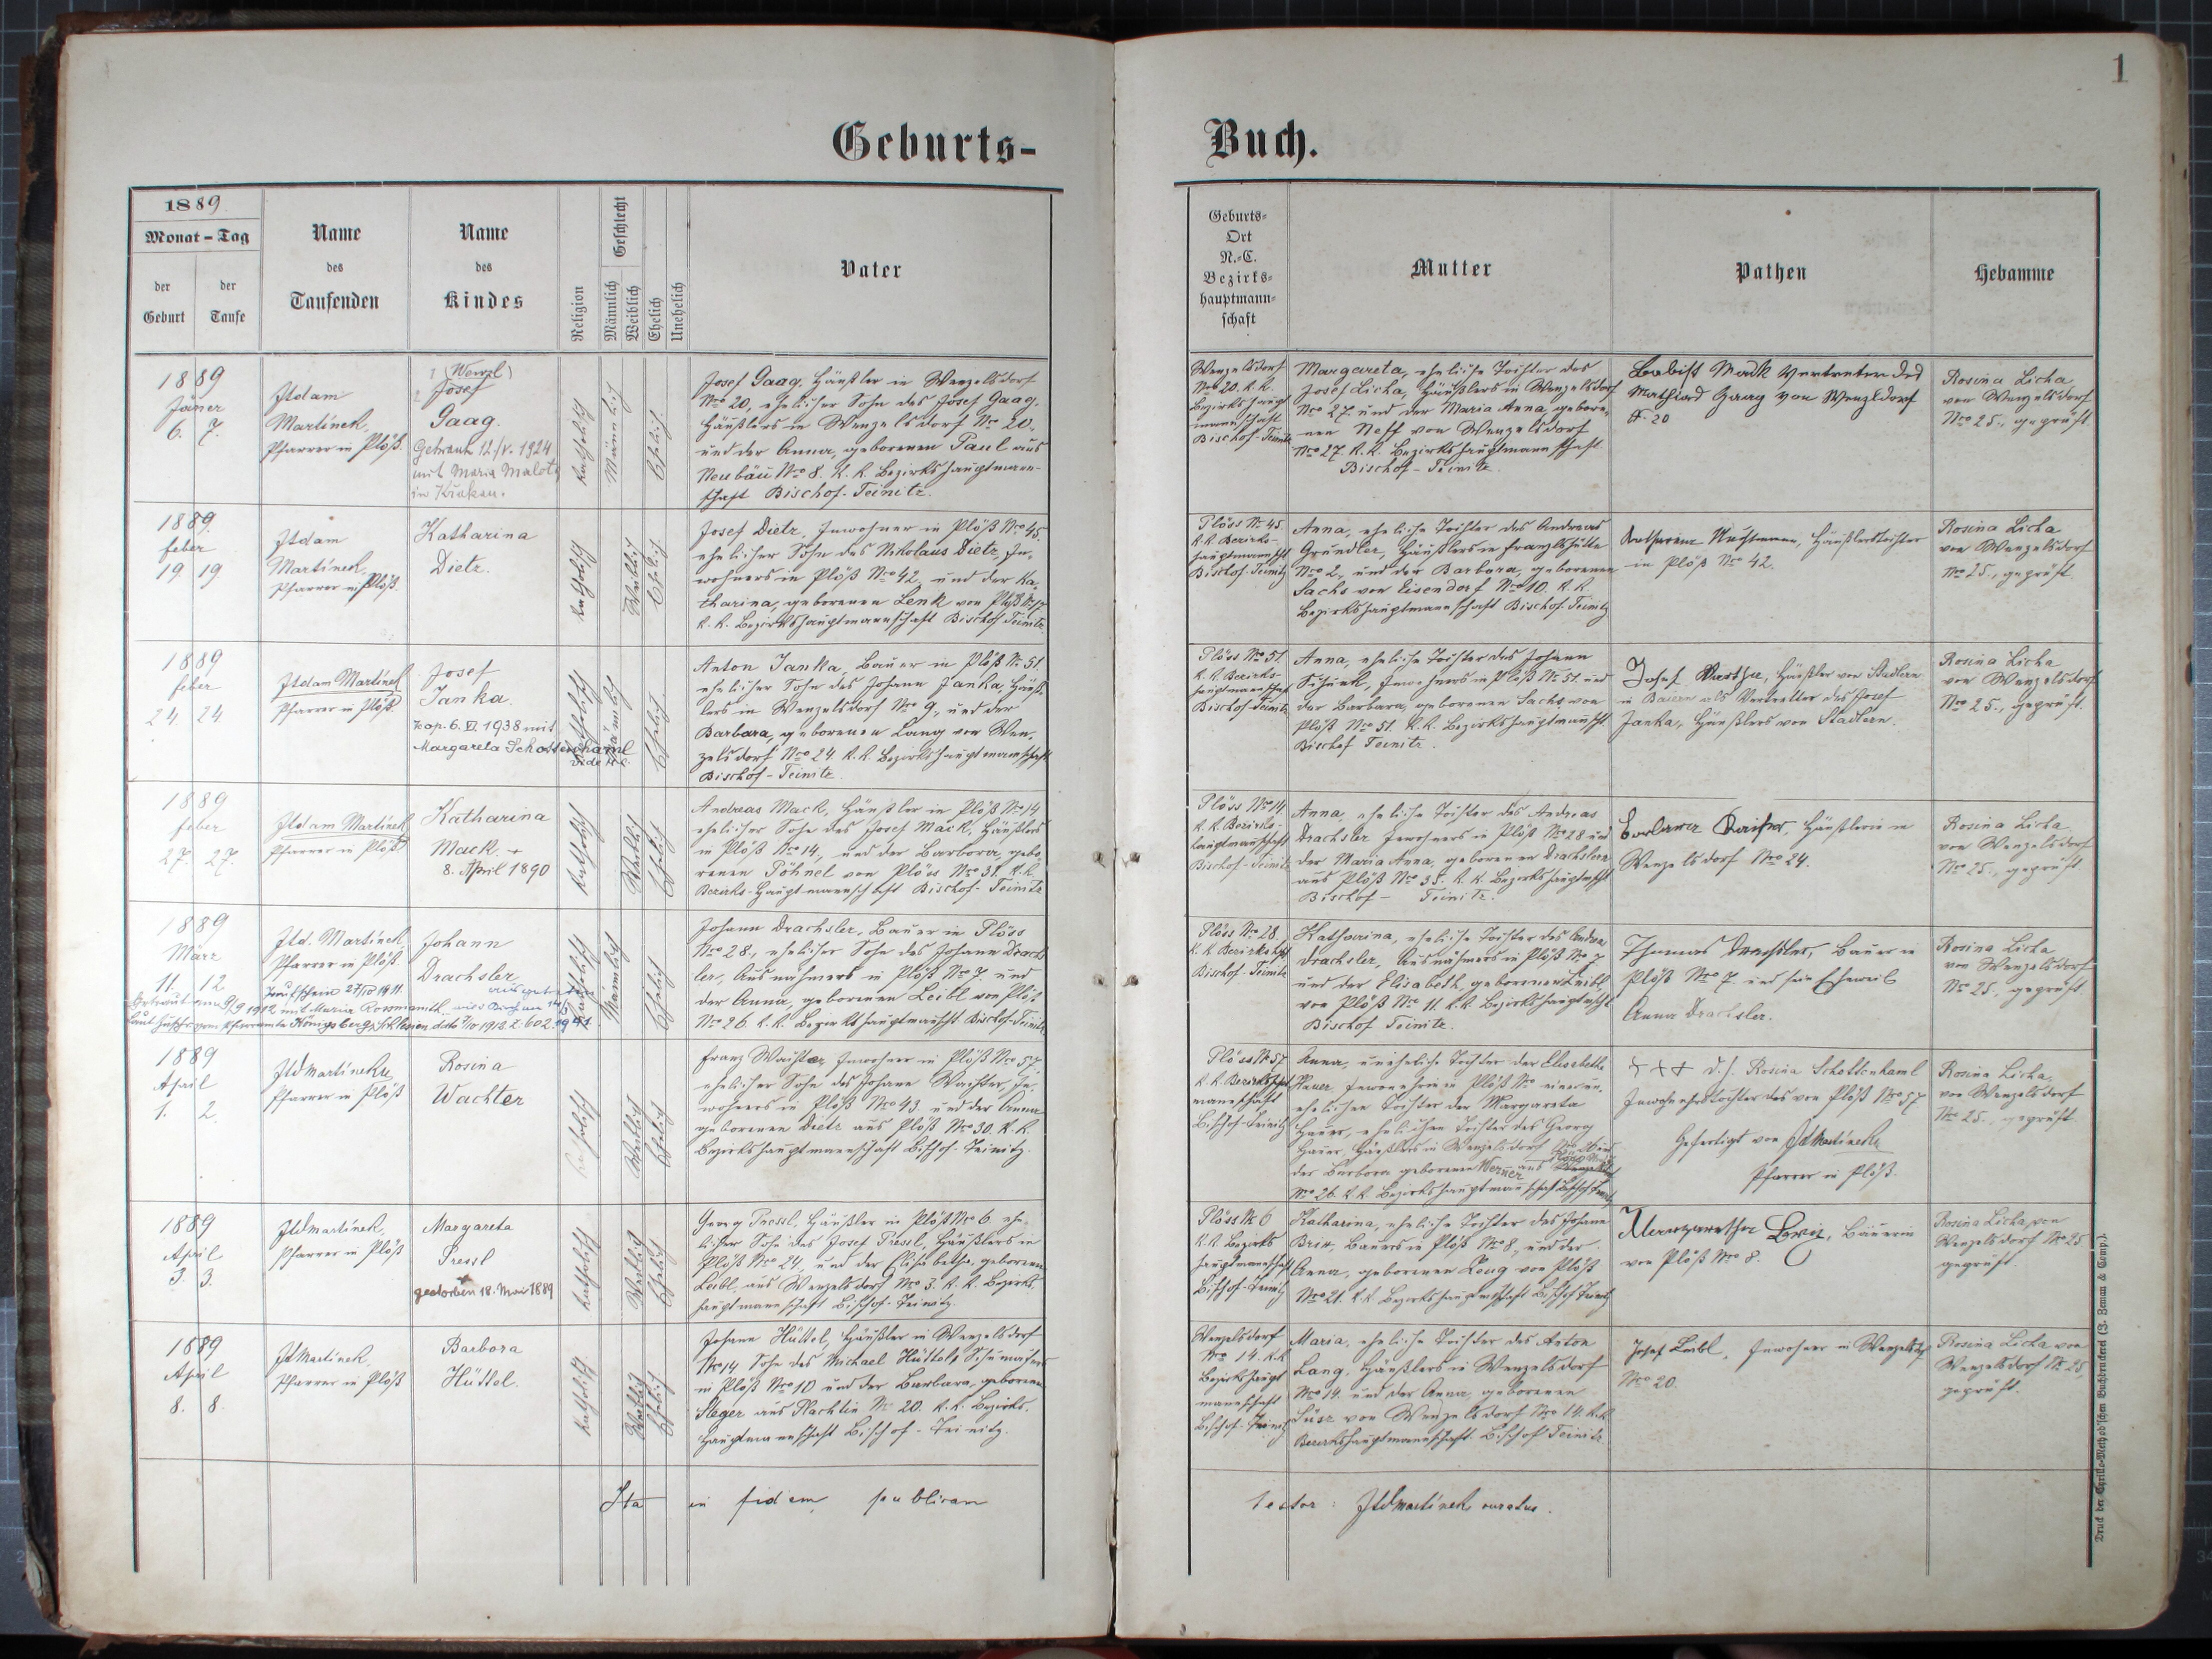 1
Geburts-
Buch.
1889
Monat - Tag
der Geburt
der Taufe
Name
des
Taufenden
Name
des
Kindes
Religion
Geschlecht
Männlich
Weiblich
Ehelich
Unehelich
Vater
Geburts-
Ort
N.-C.
Bezirks-
hauptmann-
schaft
Mutter
Pathen
Hebamme
1889
Jäner
6. 7.
Martínek,
Pfarrer in Plöß.
1 (Wenzl)
2 Josef
Gaag.
Getraut 12./V. 1924
mit Maria
in Krakau.
katholisch
Männlich
Ehelich
Josef Gaag, Häußler in Wenzelsdorf
Nro 20, ehelicher Sohn des Josef Gaag,
Häußlers in Wenzelsdorf Nro 20.
und der Anna, geborenen Paul aus
Neubäu Nro 8. k. k. Bezirkshauptmann-
schaft Bischof-Teinitz.
Wenzelsdorf
Nro 20. k. k.
Bezirkshaupt
mannschaft
Bischof-Teinitz
Margareta, eheliche Tochter des
Josef Licha, Häußlers in Wenzelsdorf
Nro 27 und der Maria Anna, gebore-
nen Neff von Wenzelsdorf
Nro 27. k. k. Bezirkshauptmannschaft
Bischof-Teinitz.
Vertreter des
Mathias Gaag von Wenzlsdorf
N. 20
Rosina Licha
von Wenzelsdorf
Nro 25., geprüft.
1889
feber
19 19
Martínek,
Pfarrer in Plöß.
Katharina
Dietz.
katholisch
Weiblich
Ehelich
Josef Dietz, Inwohner in Plöß Nro 45.
ehelicher Sohn des Nikolaus Dietz, In-
wohners in Plöß Nro 42, und der Ka-
tharina, geborenen Lenk von Plöß
k. k. Bezirkshauptmannschaft Bischof Teinitz.
Plöss Nr 45.
k. k. Bezirks-
hauptmannschft
Bischof-Teinitz
Anna, eheliche Tochter des Andreas
Gründler, Häußlers in Franzlshütte
Nro 2, und der Barbara, geborenen
Sachs von Eisendorf Nro 10. k. k.
Bezirkshauptmannschaft Bischof-Teinitz
Häußlerstochter
in Plöß Nro 42.
Rosina Licha
von Wenzelsdorf
Nro 25., geprüft.
1889
feber
24. 24
Martínek
Pfarrer in Plöß.
Josef
Janka.
kop. 6. XI. 1938 mit
Margareta Schottenhaml
katholisch
Männlich
Ehelich
Anton Janka, Bauer in Plöß Nr 51.
ehelicher Sohn des Johann Janka, Häuß-
lers in Wenzelsdorf Nro 9., und der
Barbara, geborenen Lang von Wen-
zelsdorf Nro 24. k. k. Bezirkshauptmannschaft
Bischof-Teinitz.
Plöss Nro 51.
k. k. Bezirks-
hauptmannschaft
Bischof-Teinitz
Anna, eheliche Tochter des Johann
Schenk, Inwohners in Plöß Nr 51. und
der Barbara, geborenen Sachs von
Plöß Nro 51. k. k. Bezirkshauptmannschft.
Bischof Teinitz.
Josef, Häußler von Stadlern
in Baiern als Vertretter des Josef
Janka, Häußlers von Stadlern.
Rosina Licha
von Wenzelsdorf
Nro 25., geprüft.
1889
feber
27. 27.
Martínek
Pfarrer in Plöß
Katharina
Mack. +
8. April 1890
katholisch
Weiblich
Ehelich
Andreas Mack, Häußler in Plöß Nro 14
ehelicher Sohn des Josef Mack, Häußlers
in Plöß Nro 14, und der Barbora, gebo-
renen Pöhnel von Plöss Nro 31. k. k.
Bezirks-Hauptmannschaft Bischof-Teinitz
Plöss Nro 14
k. k. Bezirks-
hauptmannschaft
Bischof-Teinitz
Anna, eheliche Tochter des Andreas
Drachsler Inwohners in Plöß Nro 28 und
der Maria Anna, geborenen Drachsler
aus Plöß Nro 35. k. k. Bezirkshauptmschft
Bischof-Teinitz.
Häußlerin in
Wenzelsdorf Nro 24.
Rosina Licha
von Wenzelsdorf
Nro 25., geprüft
1889
März
11. 12
Martínek
Pfarrer in Plöß.
Johann
Drachsler
Taufschein 27/IV 1911.
katholisch
Männlich
Ehelich
Johann Drachsler, Bauer in Plöss
Nro 28., ehelicher Sohn des Johann Drachs-
ler, Ausnahmers in Plöß Nro 7 und
der Anna, geborenen Leibl von Plöß
Nro 26. k. k. Bezirkshauptmannschft. Bischof-Teinitz
Plöss Nro 28.
k. k. Bezirkshft
Bischof-Teinitz
Katharina, eheliche Tochter des Andreas
Drachsler, Ausnahmers in Plöß Nro 7
und der Elisabeth, geborenen Leibl
von Plöß Nro 11. k. k. Bezirkshauptmschft
Bischof Teinitz.
Thomas Drachsler, Bauer in
Plöß Nro 7. und sein Eheweib
Anna Drachsler.
Rosina Licha
von Wenzelsdorf
Nro 25, geprüft.
1889
April
1. 2.
Martínek
Pfarrer in Plöß
Rosina
Wachter
katholisch
Weiblich
Ehelich
Franz Wachter, Inwohner in Plöß Nro 57,
ehelicher Sohn des Johann Wachter, In-
wohners in Plöß Nro 43. und der Anna
geborenen Dietz aus Plöß Nro 30. k. k.
Bezirkshauptmannschaft Bischof-Teinitz.
Plöss Nr 57
k. k. Bezirkshpt
mannschaft
Bischof-Teinitz
Anna, uneheliche Tochter der Elisabetha
ehelichen Tochter der Margareta
ehelichen Tochter des Georg
Häußlers in Wenzelsdorf
der Barbora geborenen Werner aus
Nro 26. k. k. Bezirkshauptmannschaft Bischof Teinitz
+++ d. h. Rosina Schottenhaml
Inwohnerstochter von Plöß Nro 57
Gefertigt von Martínek
Pfarrer in Plöß.
Rosina Licha,
von Wenzelsdorf
Nro 25. geprüft.
1889
April
3. 3.
Martínek,
Pfarrer in Plöß
Margareta
Pressl
+
gestorben 18. Mai 1889
katholisch
Weiblich
Ehelich
Georg Pressl, Häußler in Plöß Nro 6. ehe-
licher Sohn des Josef Pressl, Häußlers in
Plöß Nro 24, und der Elisabetha, geborenen
Leibl, aus Wenzelsdorf Nro 3. k. k. Bezirks-
hauptmannschaft Bischof-Teinitz.
Plöss Nr 6
k. k. Bezirks
hauptmannschaft
Bischof-Teinitz
Katharina, eheliche Tochter des Johann
Brix, Bauers in Plöß Nro 8, und der
Anna, geborenen Long von Plöß
Nro 21. k. k. Bezirkshauptmschaft Bischof Teinitz
Margaretha, Bäuerin
von Plöß Nro 8.
Rosina Licha, von
Wenzelsdorf Nro 25
geprüft.
1889
April
8. 8.
Martínek,
Pfarrer in Plöß
Barbora
Hüttel.
katholisch
Weiblich
Ehelich
Johann Hüttel, Häußler in Wenzelsdorf
Nro 14 Sohn des Michael Hüttel, Schumachers
in Plöß Nro 10 und der Barbara, geborenen
Steger aus Plachtin Nr 20. k. k. Bezirks-
hauptmannschaft Bischof-Teinitz.
Wenzelsdorf
Nro 14. k. k.
Bezirkshaupt
mannschaft
Bischof-Teinitz
Maria, eheliche Tochter des Anton
Lang, Häußlers in Wenzelsdorf
Nro 14. und der Anna, geborenen
Süsz von Wenzelsdorf Nro 14. k. k.
Bezirkshauptmannschaft. Bischof Teinitz
Josef Leibl, Inwohner in Wenzelsdf
Nro 20.
Rosina Licha von
Wenzelsdorf Nr 25,
geprüft.
Ita in fidem publicam
testor: Martínek curatus.
Druck der Cyrillo-Method'schen Buchdruckerei (J. Zeman & Comp.).